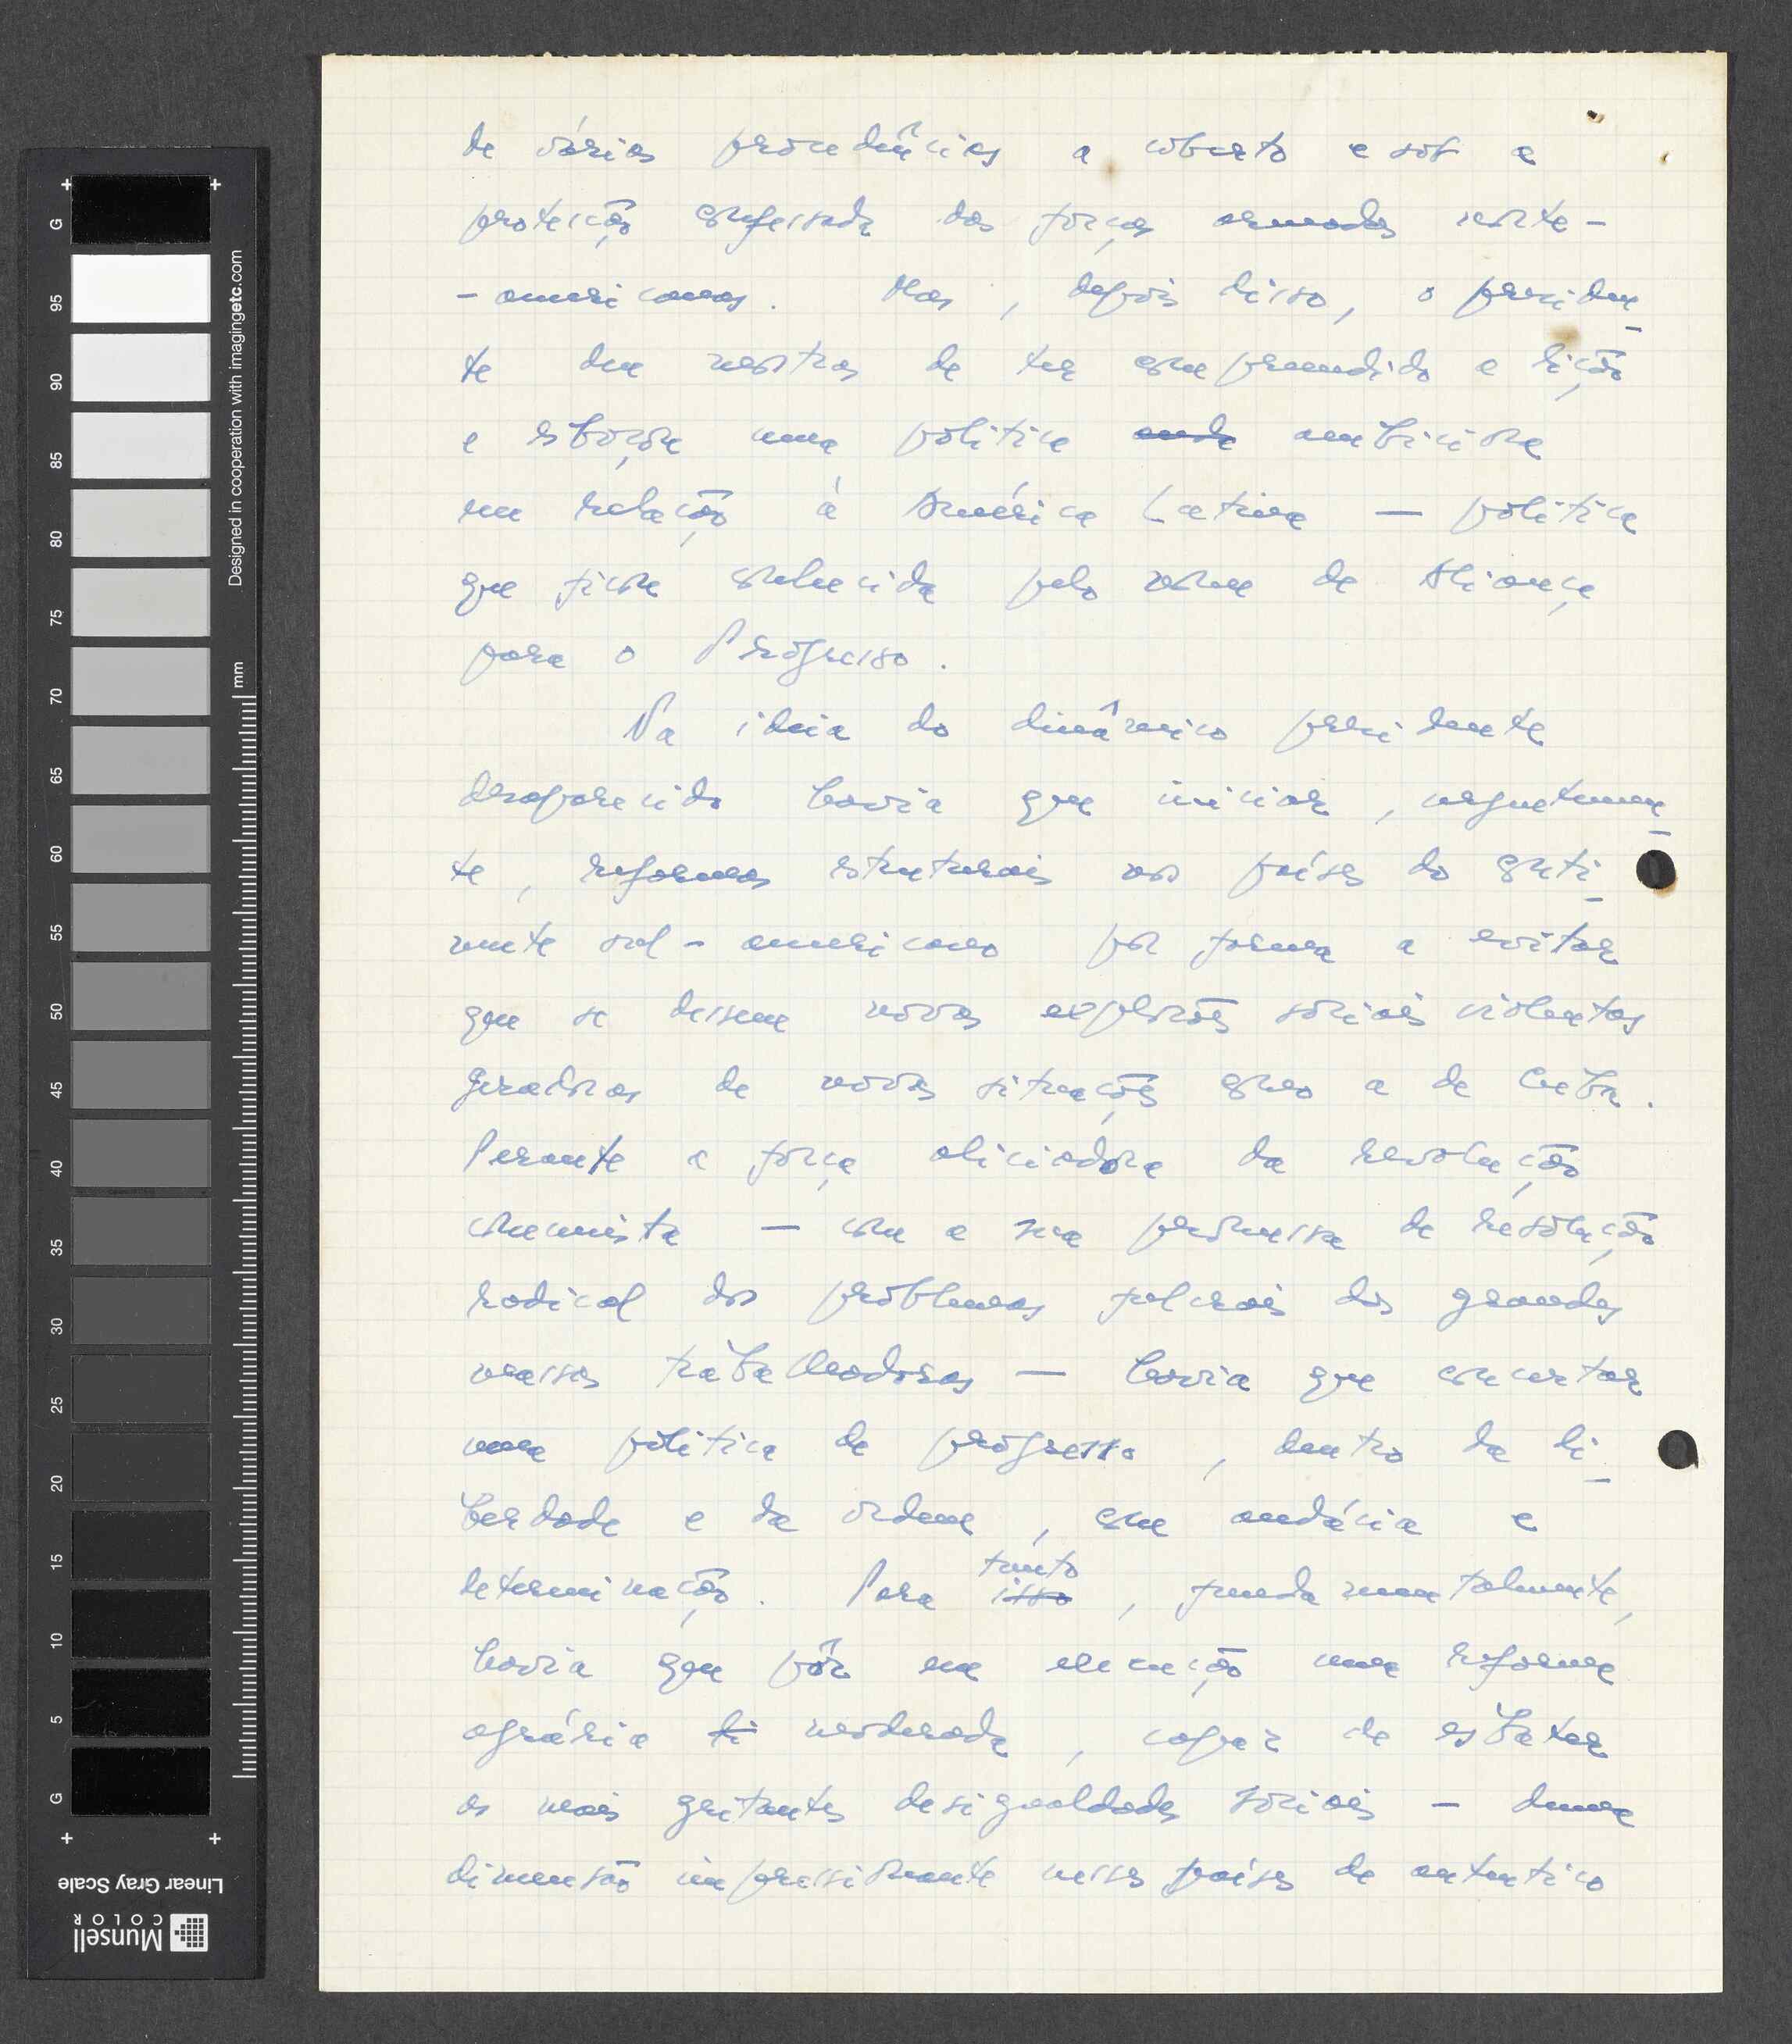 de várias procedências a coberto e sob a
proteição confessada das forças armadas norte-
-americanas. Mas, depois disso, o presiden-
te deu mostras de ter compreendido a lição
e esboçou uma política anda ambiciosa
em relação à América Latina — política
que ficou conhecida pelo nome de Aliança
para o Progresso.
Na ideia do dinâmico presidente
desaparecido havia que iniciar, urgentemen-
te, reformas estruturais nos países do conti-
nente sul-americano por forma a evitar
que se dessem novas explosões sociais violentas
geradoras de novas situações como a de Cuba.
Perante a força aliciadora da revolução
comunista — com a sua promessa de resolução
radical dos problemas fulcrais das grandes
massas trabalhadoras — havia que concertar
uma política de progresso, dentro da li-
berdade e da ordem, com audácia e
determinação. Para tanto
isso, fundamentalmente,
havia que pôr em execução uma reforma
agrária li moderada, capaz de esbater
as mais gritantes desigualdades sociais — duma
dimensão impressionante nesses países de autentico
G 95 90 85 80 75 70 65 60 55 50 45 40 35 30 25 20 15 10 5 G
Designed in cooperation with imagingetc.com
mm
Linear Gray Scale
Munsell
COLOR